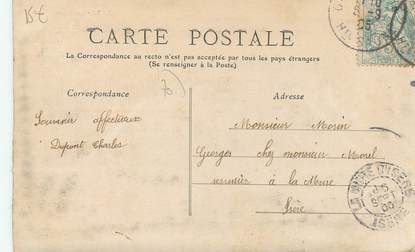 15€
CARTE POSTALE
La Correspondance au recto n'est pas acceptée par tous les pays étrangers
(Se renseigner à la Poste)
70.
Correspondance
Adresse
Souvenir affectueux
Dupont Charles
Monsieur Morin
Georges chez monsieur Morel
serrurier à la Mure
Isère
LA MURE D'ISÈRE
ISÈRE